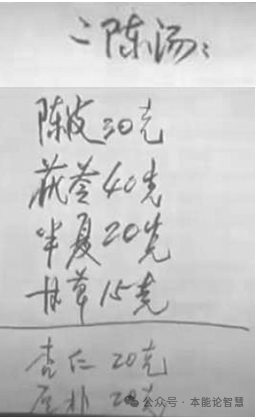 二陈汤:
陈皮30克
茯苓40克
半夏20克
甘草15克
杏仁20克
厚朴20克
公众号·本能论智慧